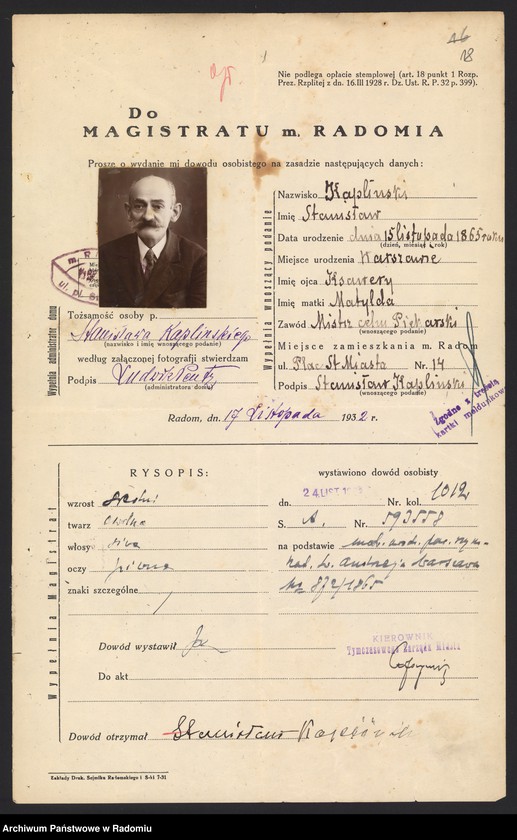 18
Nie podlega opłacie stemplowej (art. 18 punkt 1 Rozp.
Prez. Rzplitej z dn. 16.III 1928 r. Dz. Ust. R. P. 32 p. 399).
Do
MAGISTRATU m. RADOMIA
Proszę o wydanie mi dowodu osobistego na zasadzie następujących danych:
Wypełnia wnoszący podanie
Nazwisko Kapliński
Imię Stanisław
Data urodzenie dnia 15 listopada 1865 roku
(dzień, miesiąc i rok)
Miejsce urodzenie Warszawa
Imię ojca Ksawery
Imię matki Matylda
Zawód Mistrz cechu Piekarski
(wnoszącego podanie)
Miejsce zamieszkania m. Radom
ul. Plac St Miasta Nr. 14
Podpis Stanisław Kapliński
(wnoszącego podanie)
Wypełnia administrator domu
Tożsamość osoby p.
Stanisława Kaplińskiego
(nazwisko i imię wnoszącego podanie)
według załączonej fotografii stwierdzam
Podpis Ludwik
(administratora domu)
Zgodne z treścią
kartki meldunkowej
Radom, dn. 17 Listopada 1932 r.
Wypełnia Magistrat
RYSOPIS:
wzrost średni
twarz owalna
włosy siwe
oczy piwne
znaki szczególne /
wystawiono dowód osobisty
dn. 24 LIST Nr. kol. 1012
S. A. Nr. 593558
na podstawie
św. Andrzeja Warszawa
Nr 872/1865
Dowód wystawił
KIEROWNIK
Tymczasowego Zarządu Miasta
Do akt
Dowód otrzymał Stanisław Kapliński
Zakłady Druk. Sejmiku Radomskiego i S-ki 7-31
Archiwum Państwowe w Radomiu